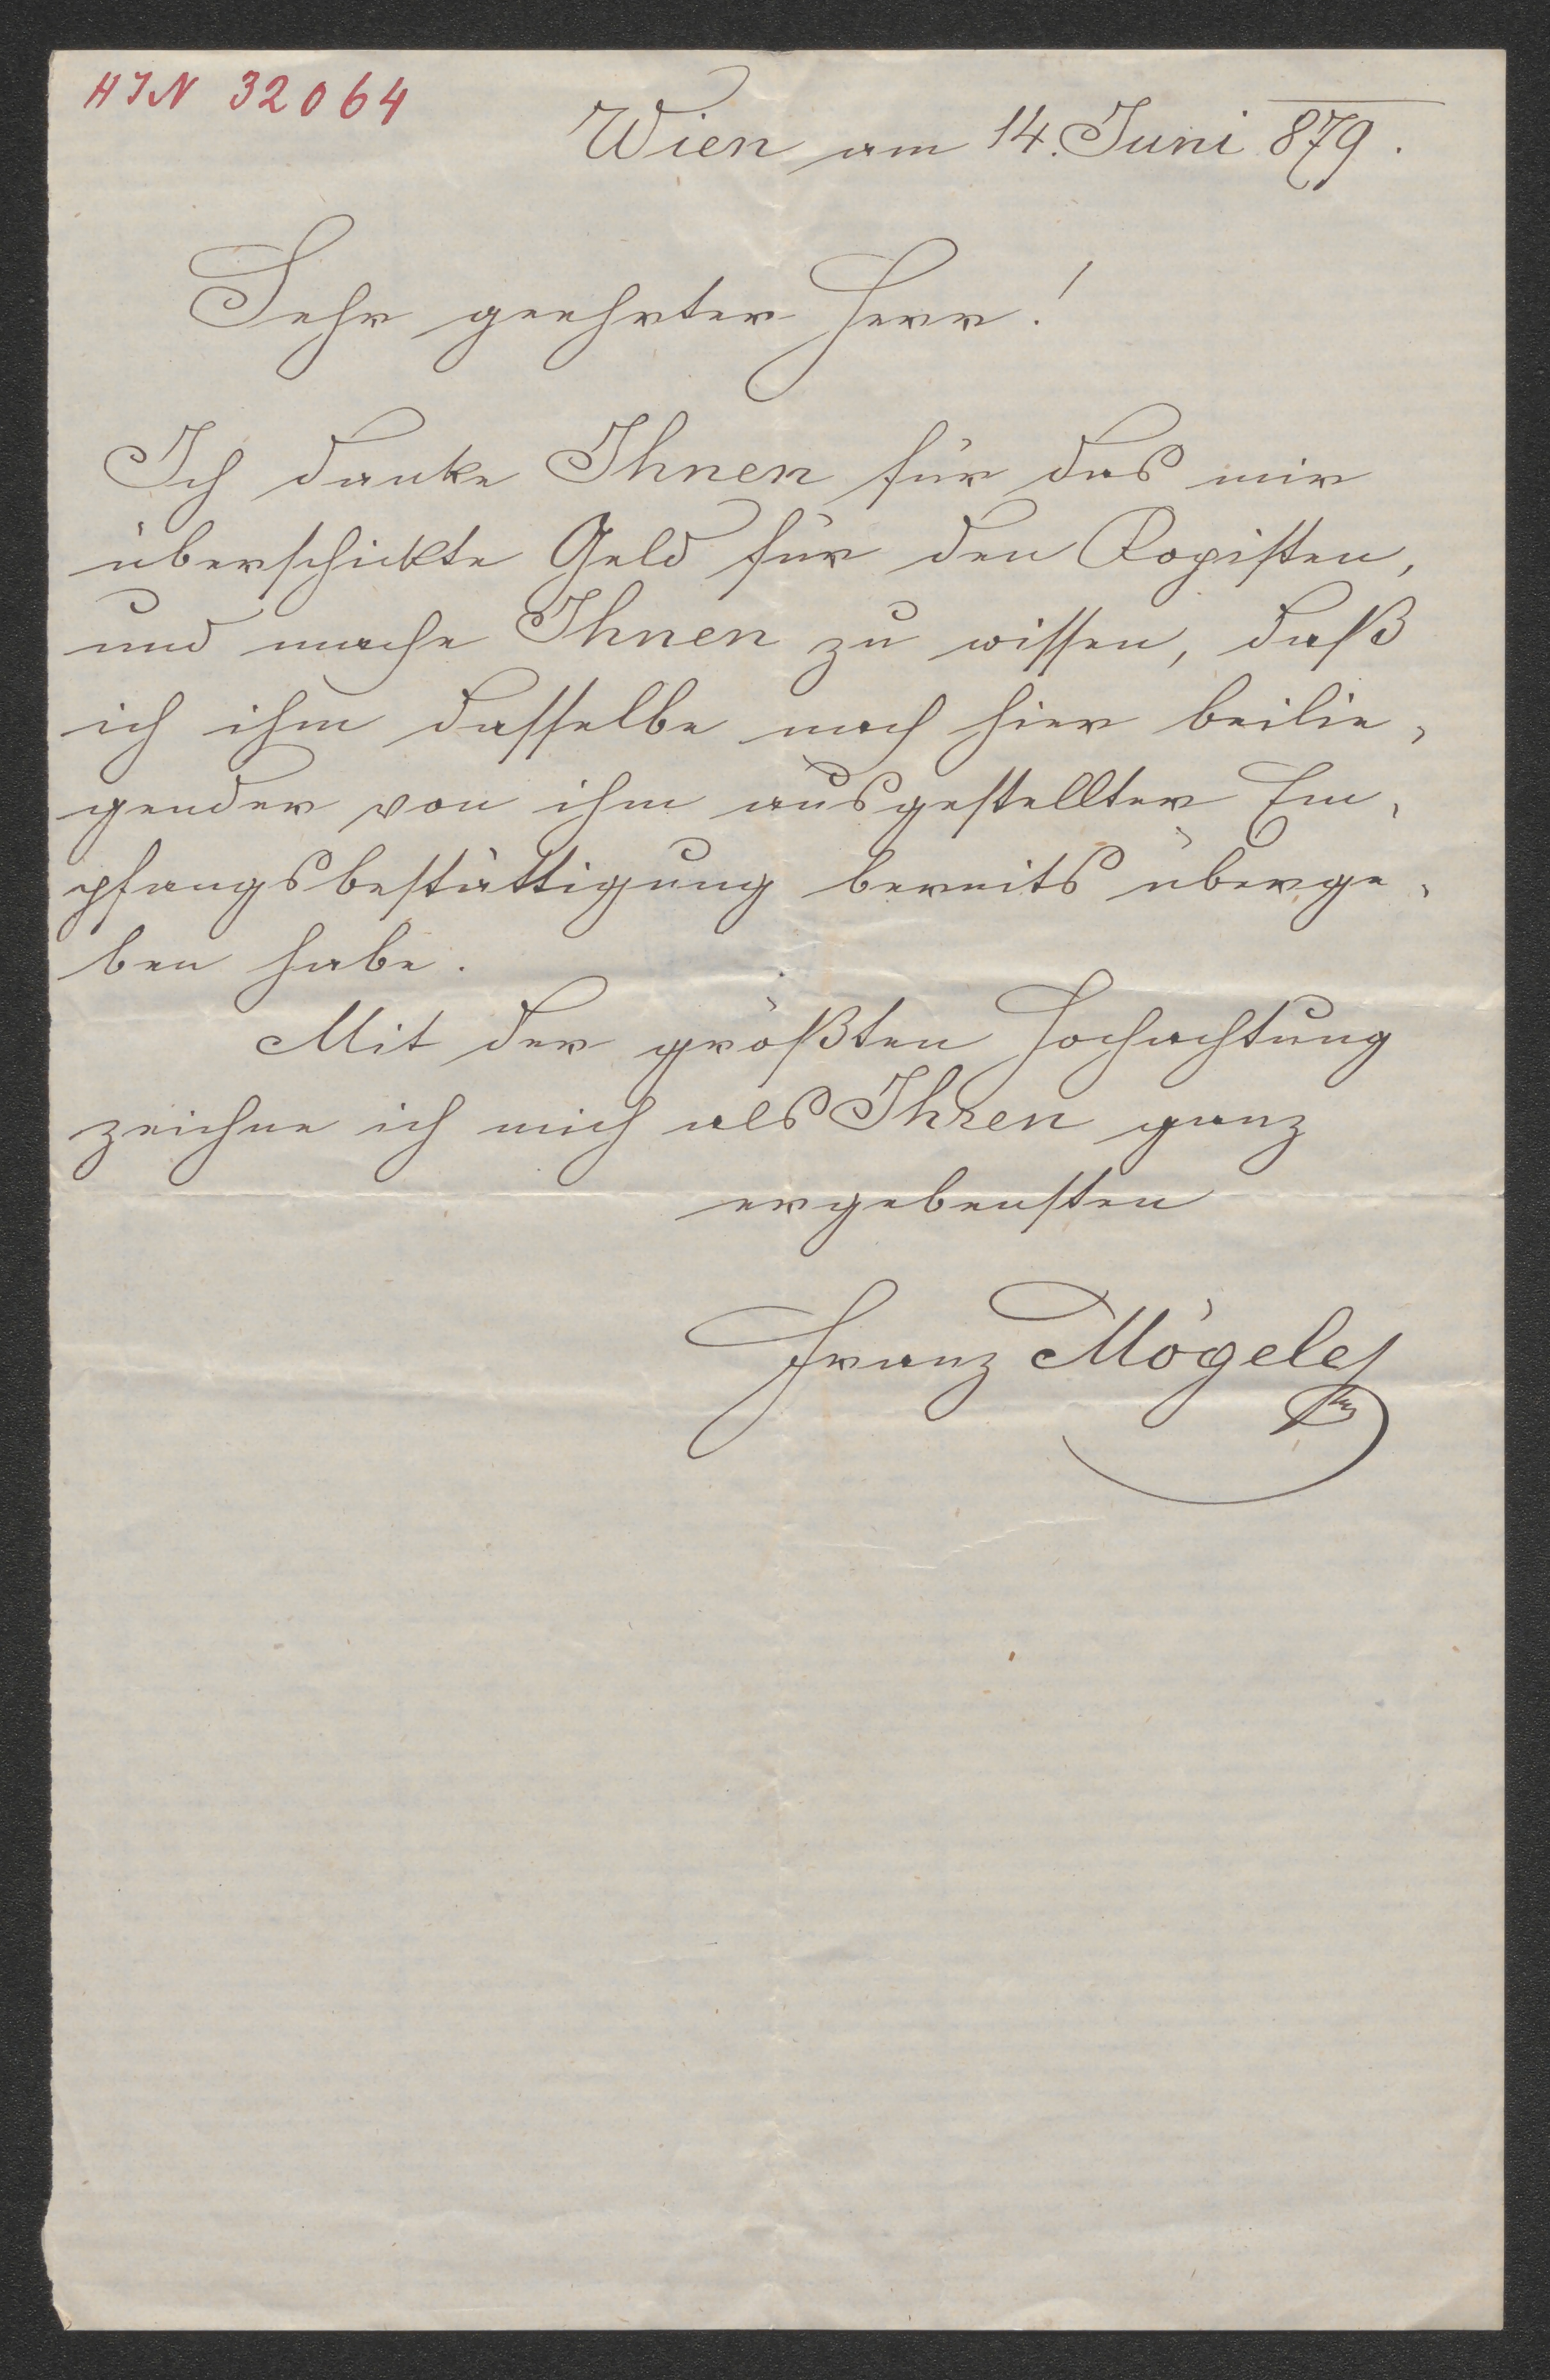 HIN 32064
Wien am 14. Juni 879.
Sehr geehrter Herr!
Ich danke Ihnen für das mir
überschickte Geld für den Kopisten,
und mache Ihnen zu wissen, daß
ich ihm dasselbe nach hier beilie-
gender von ihm ausgestellter Em-
pfangsbestättigung bereits überge-
ben habe.
Mit der größten Hochachtung
zeichne ich mich als Ihren ganz
ergebensten
Franz Mögele